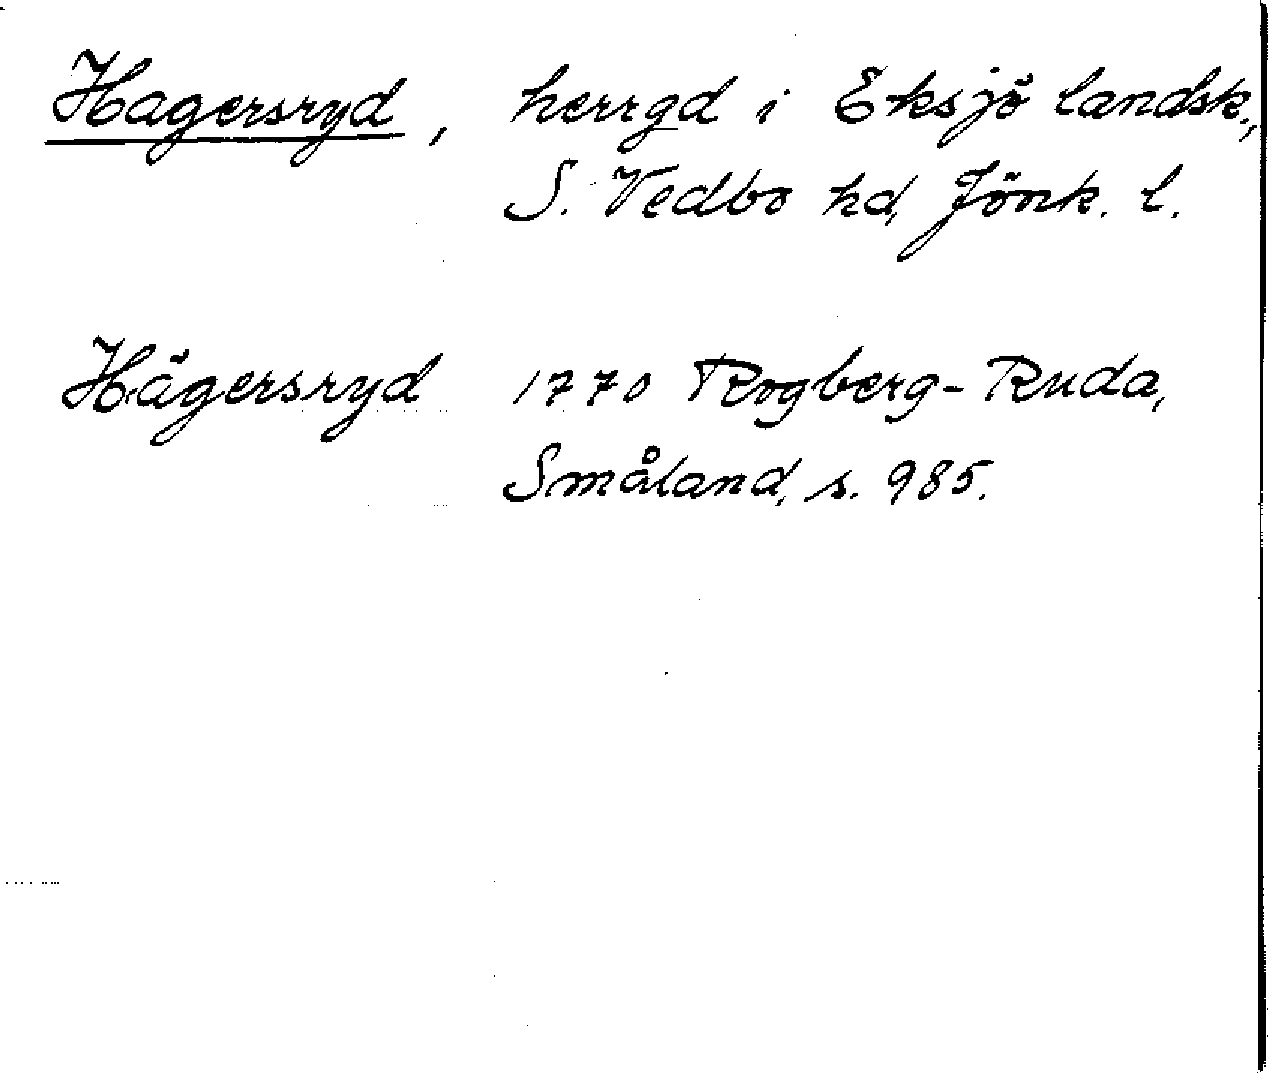 Hagersryd, herrgd i Eksjö landsk.,
S. Vedbo hd, Jönk. l.
Hägersryd 1770 Rogberg-Ruda,
Småland, s. 985.